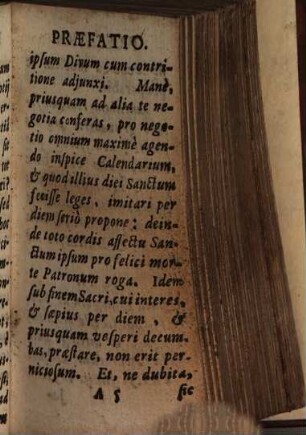 PRÆFATIO.
ipsum Divum cum contri-
tione adjunxi. Manè,
priusquam ad alia te ne-
gotia conferas, pro nego-
tio omnium maximè agen-
do inspice Calendarium,
& quod illius diei Sanctum
fecisse leges, imitari per
diem seriò propone; dein-
de toto cordis affectu San-
ctum ipsum pro felici mor-
te Patronum roga. Idem
sub finem Sacri, cui interes,
& sæpius per diem, &
priusquam vesperi decum-
bas, præstare, non erit per-
niciosum. Et, ne dubita,
A 5 sic